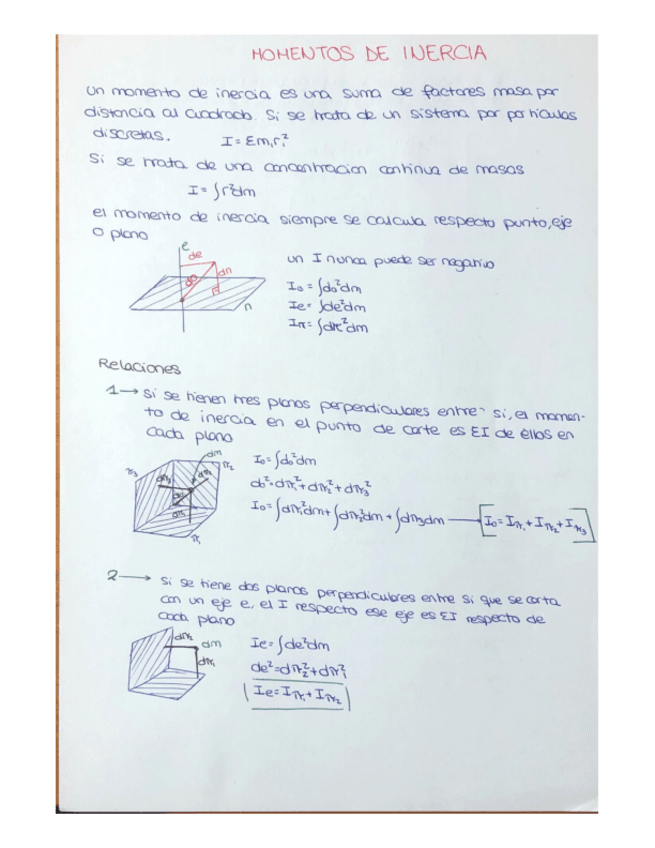 MOMENTOS DE INERCIA
un momento de inercia es una suma de factores masa por
distancia al cuadrado. Si se trata de un sistema por partículas
discretas. I = Σmᵢrᵢ²
Si se trata de una concentracion continua de masas
I = ∫r²dm
el momento de inercia siempre se calcula respecto punto, eje
o plano
e
de
dn
do
π
un I nunca puede ser negativo
Io = ∫do²dm
Ie = ∫de²dm
Iπ = ∫dπ²dm
Relaciones
1→ Si se tienen tres planos perpendiculares entre si, el momen-
to de inercia en el punto de corte es ΣI de ellos en
cada plano
dm
π3
π2
dπ3
dπ2
do
dπ1
π1
Io = ∫do²dm
do² = dπ1² + dπ2² + dπ3²
Io = ∫dπ1²dm + ∫dπ2²dm + ∫dπ3dm → Io = Iπ1 + Iπ2 + Iπ3
2→ Si se tiene dos planos perpendiculares entre si que se corta
con un eje e, el I respecto ese eje es ΣI respecto de
cada plano
dπ2
dm
dπ1
Ie = ∫de²dm
de² = dπ2² + dπ1²
Ie = Iπ1 + Iπ2